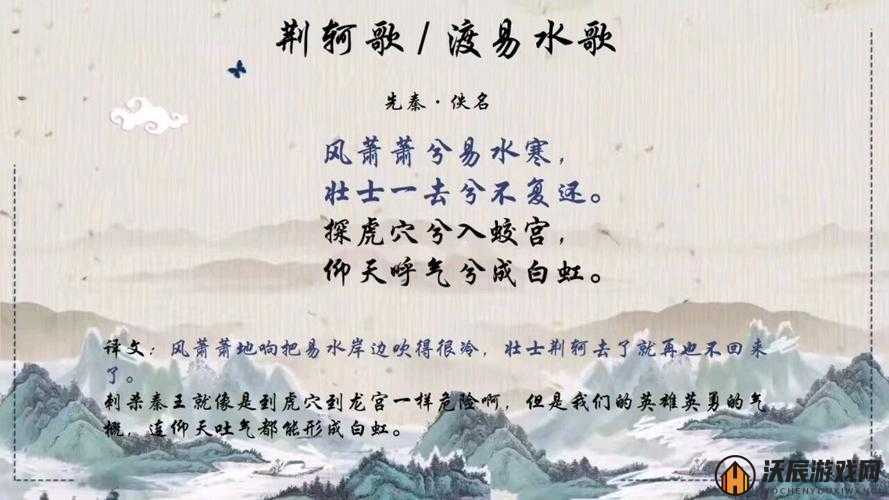 荆轲歌/渡易水歌
先秦·佚名
风萧萧兮易水寒，
壮士一去兮不复还。
探虎穴兮入蛟宫，
仰天呼气兮成白虹。
译文：风萧萧地响把易水岸边吹得很冷，壮士荆轲去了就再也不回来
了。
刺杀秦王就像是到虎穴到龙宫一样危险啊，但是我们的英雄英勇的气
概，连仰天吐气都能形成白虹。
沃辰游戏网